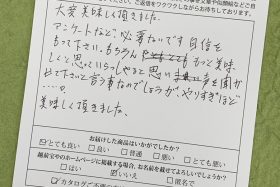 ご返信をワクワクしながらお待ちしております。
大変美味しく頂きました。
アンケートなどご必要ないです 自信を
もって下さい。もちろん もっと美味
しくと思っていらっしゃると思い を聞か
せて下さいと言う事なのでしょうが、やりすぎほど
…。
美味しく頂きました。
お届けした商品はいかがでしたか?
☑とても良い □良い □普通 □悪い □とても悪い
越前宝やのホームページに掲載する場合、お名前を載せてよろしいでしょうか?
□はい ☑いいえ □匿名で
□カタログご不要の